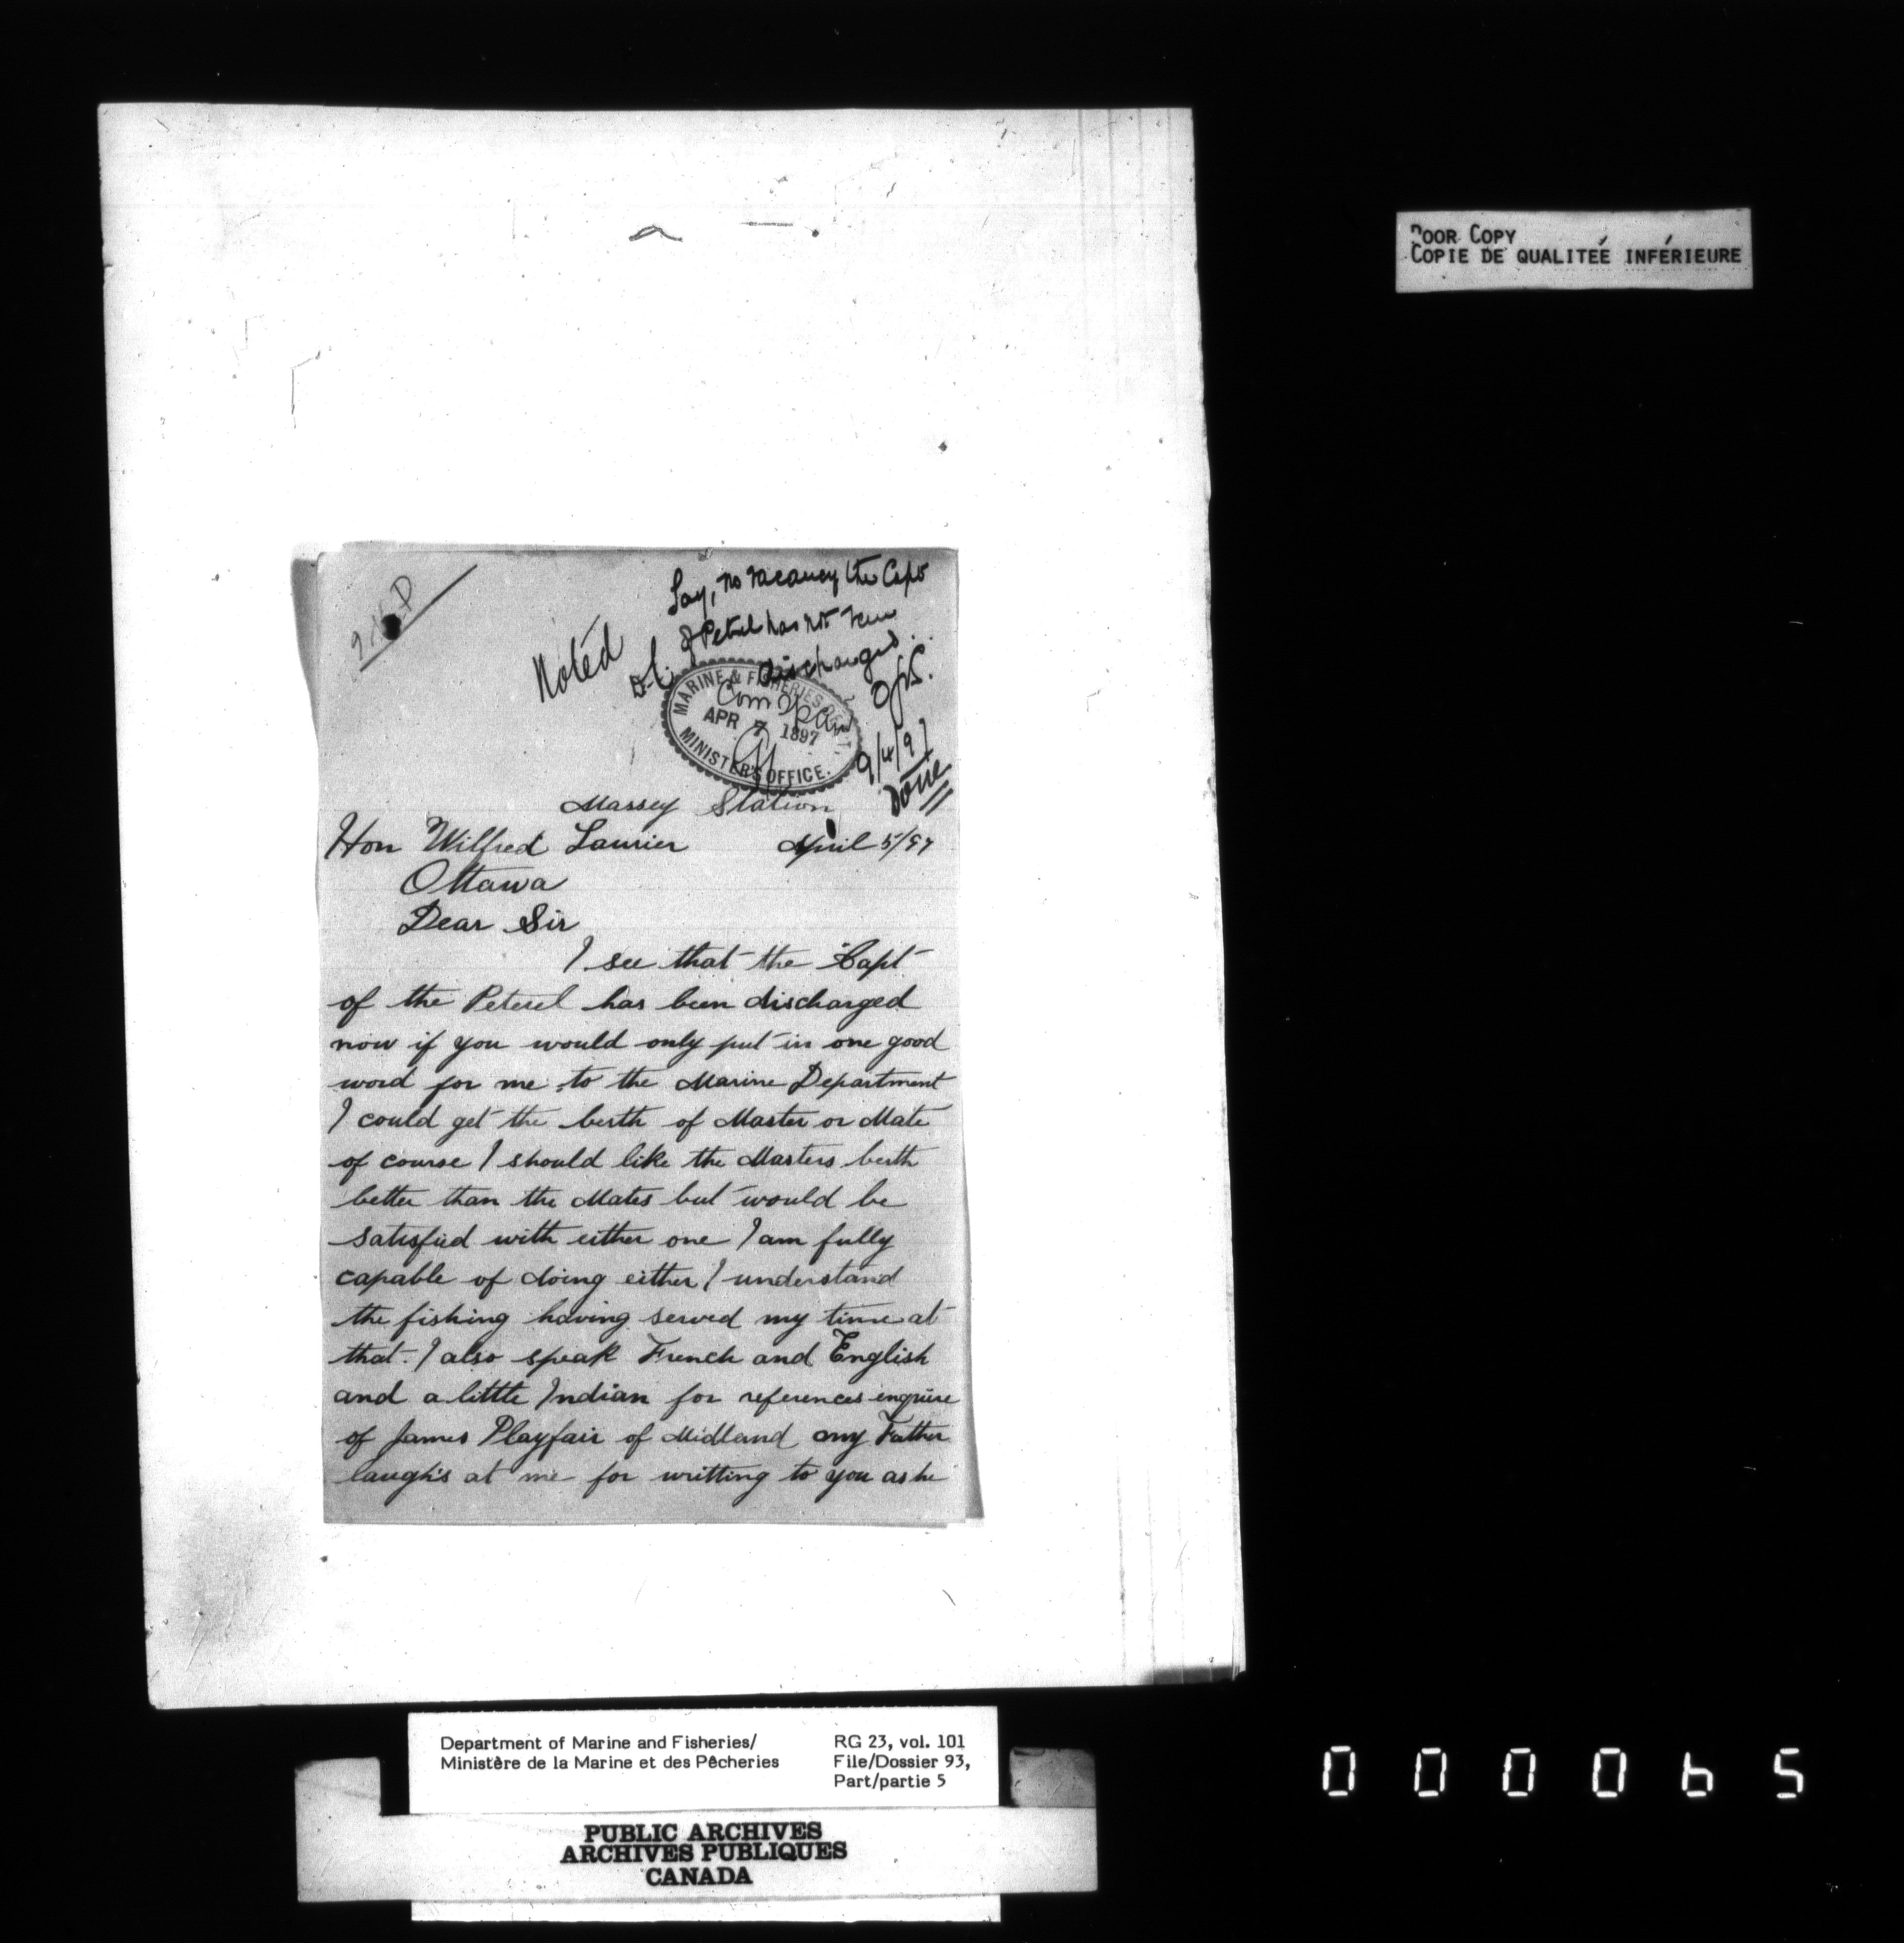 POOR COPY
COPIE DE QUALITEÉ INFÉRIEURE
Say, no vacancy the Capt
of Petrel has not been
discharged.
Noted
MARINE & FISHERIES DEPT.
APR 7 1897
MINISTER'S OFFICE.
9/4/97
Done
Massey Station
Hon Wilfred Laurier April 5/97
Ottawa
Dear Sir
I see that the Capt
of the Peterel has been discharged
now if you would only put in one good
word for me to the Marine Department
I could get the berth of Master or Mate
of course I should like the Masters berth
better than the Mates but would be
satisfied with either one I am fully
capable of doing either I understand
the fishing having served my time at
that. I also speak French and English
and a little Indian for references enquire
of James Playfair of Midland my Father
laughs at me for writting to you as he
Department of Marine and Fisheries/
Ministère de la Marine et des Pêcheries
RG 23, vol. 101
File/Dossier 93,
Part/partie 5
PUBLIC ARCHIVES
ARCHIVES PUBLIQUES
CANADA
000065